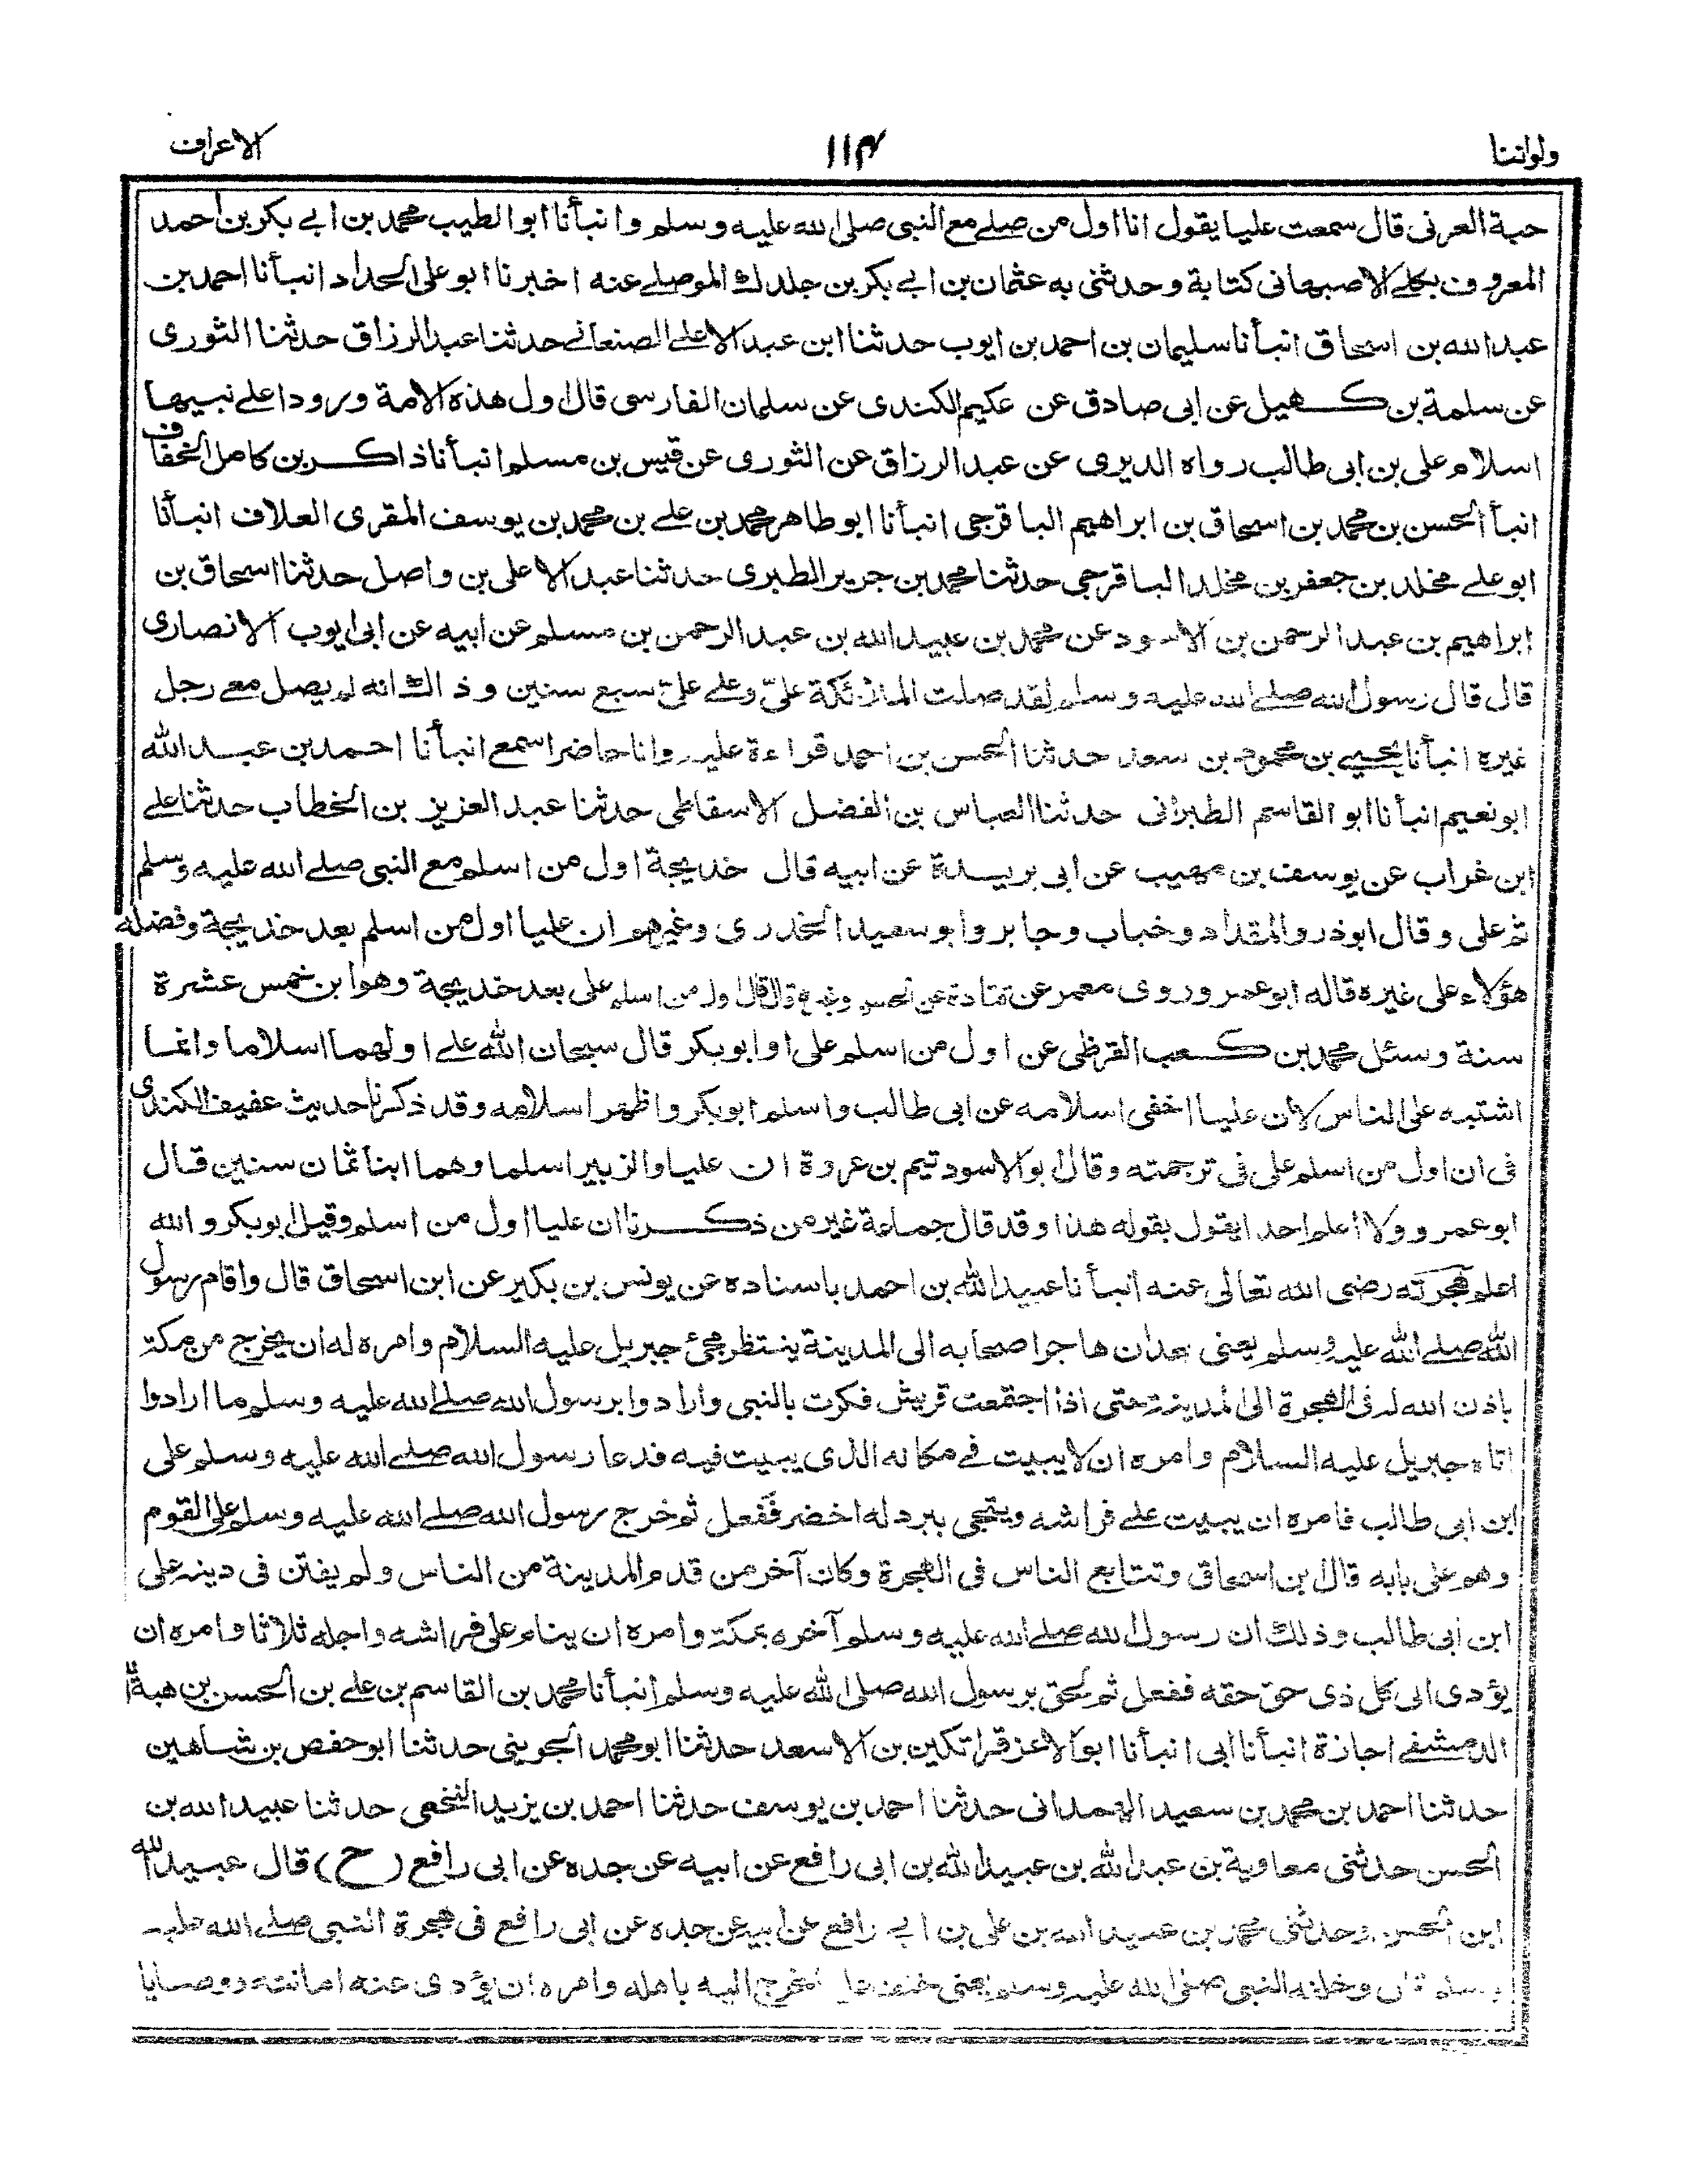 ولواننا ١١٣ الاعراف
حبة العرنى قال سمعت عليا يقول انا اول من صلے مع النبى صلى الله عليه وسلم وانبأنا ابو الطيب محمد بن ابے بكر بن احمد
المعروف بكلے الاصبهانى كتابة وحدثنى به عثمان بن ابے بكر بن جلدك الموصلے عنه اخبرنا ابو على الحداد انبأنا احمد بن
عبد الله بن اسحاق انبأنا سليمان بن احمد بن ايوب حدثنا ابن عبد الاعلے الصنعانے حدثنا عبد الرزاق حدثنا الثورى
عن سلمة بن كهيل عن ابى صادق عن عكيم الكندى عن سلمان الفارسى قال اول هذه الامة ورودا علے نبيها
اسلام على بن ابى طالب رواه الديرى عن عبد الرزاق عن الثورى عن قيس بن مسلم انبأنا ذاكر بن كامل الخفاف
انبأ الحسن بن محمد بن اسحاق بن ابراهيم الباقرجى انبأنا ابو طاهر محمد بن علے بن محمد بن يوسف المقرى العلاف انبأنا
ابو علے مخلد بن جعفر بن مخلد الباقرجى حدثنا محمد بن جرير الطبرى حدثنا عبد الاعلى بن واصل حدثنا اسحاق بن
ابراهيم بن عبد الرحمن بن الاسود عن محمد بن عبيد الله بن عبد الرحمن بن مسلم عن ابيه عن ابى ايوب الانصارى
قال قال رسول الله صلے الله عليه وسلم لقد صلت الملائكة علىّ وعلے علىّ سبع سنين وذالك انه لم يصل معے رجل
غيره انبأنا يحيے بن محمود بن سعد حدثنا الحسن بن احمد قراءة عليه وانا حاضر اسمع انبأنا احمد بن عبد الله
ابو نعيم انبأنا ابو القاسم الطبرانى حدثنا العباس بن الفضل الاسقاطى حدثنا عبد العزيز بن الخطاب حدثنا علے
ابن غراب عن يوسف بن صهيب عن ابى بريدة عن ابيه قال خديجة اول من اسلم مع النبى صلے الله عليه وسلم
ثم على وقال ابو ذر والمقداد وخباب وجابر وابو سعيد الخدرى وغيرهم ان عليا اول من اسلم بعد خديجة وفضله
هؤلاء على غيره قاله ابو عمر وروى معمر عن قتادة عن الحسن وغيره قال اول من اسلم على بعد خديجة وهو ابن خمس عشرة
سنة وسئل محمد بن كعب القرظى عن اول من اسلم على او ابو بكر قال سبحان الله علے اولهما اسلاما وانما
اشتبه على الناس لان عليا اخفى اسلامه عن ابى طالب واسلم ابو بكر واظهر اسلامه وقد ذكرنا حديث عفيف الكندى
فى ان اول من اسلم على فى ترجمته وقال ابو الاسود تيم بن عروة ان عليا والزبير اسلما وهما ابنا ثمان سنين قال
ابو عمر وولا اعلم احدا يقول بقوله هذا وقد قال جماعة غير من ذكرنا ان عليا اول من اسلم وقيل ابو بكر والله
اعلم هجرته رضى الله تعالى عنه انبأنا عبيد الله بن احمد باسناده عن يونس بن بكير عن ابن اسحاق قال واقام رسول
الله صلے الله عليه وسلم يعنى بعد ان هاجر اصحابه الى المدينة ينتظر مجئ جبريل عليه السلام وامره له ان يخرج من مكة
باذن الله له فى الهجرة الى المدينة حتى اذا اجتمعت قريش فمكرت بالنبى وارادوا برسول الله صلے الله عليه وسلم ما ارادوا
اتاه جبريل عليه السلام وامره ان لا يبيت فے مكانه الذى يبيت فيه فدعا رسول الله صلے الله عليه وسلم على
ابن ابى طالب فامره ان يبيت علے فراشه ويتجى ببرد له اخضر ففعل ثم خرج رسول الله صلے الله عليه وسلم على القوم
وهم على بابه قال ابن اسحاق وتتابع الناس فى الهجرة وكان آخر من قدم المدينة من الناس ولم يفتن فى دينه على
ابن ابى طالب وذلك ان رسول الله صلے الله عليه وسلم آخره بمكة وامره ان ينام على فراشه واجله ثلاثا وامره ان
يؤدى الى كل ذى حق حقه ففعل ثم لحق برسول الله صلى الله عليه وسلم انبأنا محمد بن القاسم بن علے بن الحسن بن هبة الله
الدمشقے اجازة انبأنا ابى انبأنا ابو الاعز قراتكين بن الاسعد حدثنا ابو محمد الجوينى حدثنا ابو حفص بن شاهين
حدثنا احمد بن محمد بن سعيد الهمدانى حدثنا احمد بن يوسف حدثنا احمد بن يزيد النخعى حدثنا عبيد الله بن
الحسن حدثنى معاوية بن عبد الله بن عبيد الله بن ابى رافع عن ابيه عن جده عن ابى رافع (ح) قال عبيد الله
ابن الحسن وحدثنى محمد بن عبيد الله بن على بن ابے رافع عن ابيه عن جده عن ابى رافع فى هجرة النبى صلے الله عليه
وسلم وخلفه النبى صلى الله عليه وسلم يعنى يخرج اليه باهله وامره ان يؤدى عنه امانته ووصايا